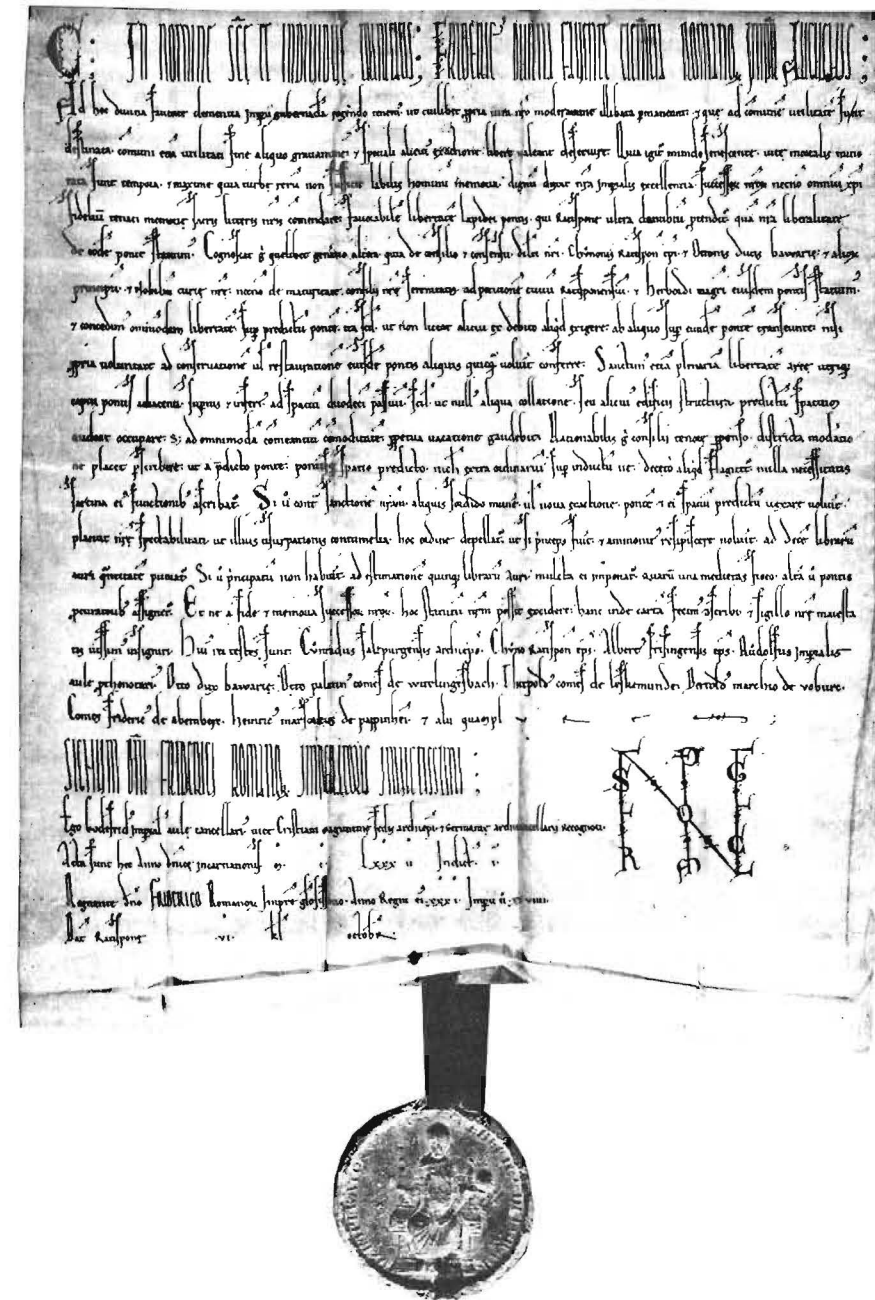 C : IN NOMINE SCE ET INDIVIDUE TRINITATIS ; FRIDERIC DIVINA FAVENTE CLEMENTIA ROMANOR IMPR AUGUSTUS :
Ad hoc divina favente clementia impii gubernacla regendo tenem ut cuilibet ppria iura nro moderamine illibata pmaneant & que ad comune utilitate sunt
destinata comuni etia utilitati sine aliquo gravamine & speciali alicui exactione libere valeant deservire. Quia igit mundo senescente vite mortalis
sunt tempora & maxime quia turbe reru non sufficit labilis hominu memoria dignu duxit nra impialis excellentia successor nror necnon omniu xpi
fideliu tenaci memorie scriti litteris nris comendare favorabile libertate lapidei pontis qui Ratispone ultra danubiu ptendit qua nra liberalitate
de eode ponte statuim. Cognoscat g quelibet generatio altera quia de consilio & consensu dilci nri Chunonis Ratispon epi & Ottonis ducis bawarie & alior
principu & nobiliu curie nre necnon de maturitate consilii nre serenitatis ad petitione civiu Ratisponensiu & Herbordi magri eiusdem pontis statuim
& concedim omnimodam libertate sup predictu ponte ita scil ut non liceat alicui ex debito aliqd exigere ab aliquo sup eunde ponte transeunte nisi
ppria voluntate ad conservatione ul restauratione eiusde pontis aliquis quicq voluit conferre. Sancim etia plenaria libertate
capiti pontis adiacenti supius & infer ad spaciu duodeci passuu scil ut null aliqua collatione seu alicui edificii structura predictu spatium
audeat occupare s; ad omnimoda comeantiu comoditate ppetua vacatione gaudebit. Rationabilis g consilii tenore ppenso districta modatio
ne placet pscribere ut a pdicto ponte pontisq spatio predicto nich extra ordinariu sup indictu ve deceto aliqd flagitet nulla necessitatis
sartina ei functionib ascribat. Si u cont sanctione nram aliquis sordido mune ul nova exactione ponte & ei spaciu predictu vexare voluit
placuit nre spectabilitati ut illius usurpationis contumelia hoc ordine depellat ut si pnceps fuit & ammonit resipiscere noluit ad dece libraru
auri quitate puniat. Si u pncipatu non habuit ad estimatione quinq libraru auri mulcta ei imponat quaru una medietas fisco alta u pontis
pcuratorib assignet. Et ne a fide & memoria successor nror hoc statutu nrm possit excidere hanc inde carta fecim cscribi & sigillo nre maiesta
tis iussim insigniri. Hui rei testes sunt. Cunradus salzpurgensis archiepc. Chuno Ratispon eps. Albert frisingensis eps. Rudolfus impialis
aule pthonotari. Otto dux bawarie. Otto palatin comes de witelingesbach. comes de leskemunde. Bertold marchio de vobure.
Comes frideric de abenberc. heinric marscalcus de pappinhei. & alii quampl
SIGNUM DNI FRIDERICI ROMANOR IMPERATORIS INVICTISSIMI ;
Ego Godefrid impial aule cancellari vice Cristiani maguntine sedis archiepi & Germanie archicancellarii recognovi.
Acta sunt hec anno dnice incarnationis M. C. LXXX II Indict I.
Regnante dno FRIDERICO Romanor Impre glosissimo. Anno Regni ei xxx I. Impii u xx viiii.
Dat Ratispone .vi. kl octobr